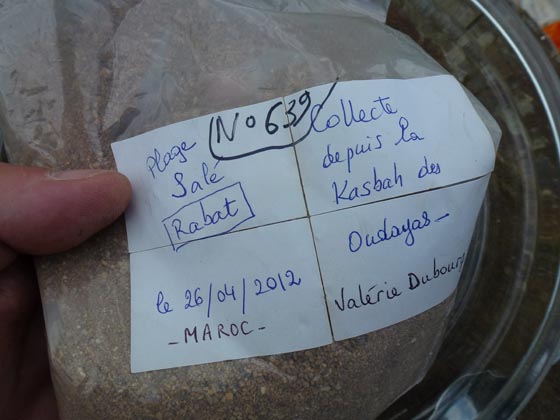 No 639
Plage
Salé
Rabat
le 26/04/2012
- MAROC -
Collecte
depuis la
Kasbah des
Oudayas -
Valérie Dubourg